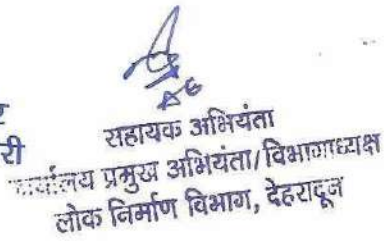 री
सहायक अभियंता
कार्यालय प्रमुख अभियंता/विभागाध्यक्ष
लोक निर्माण विभाग, देहरादून